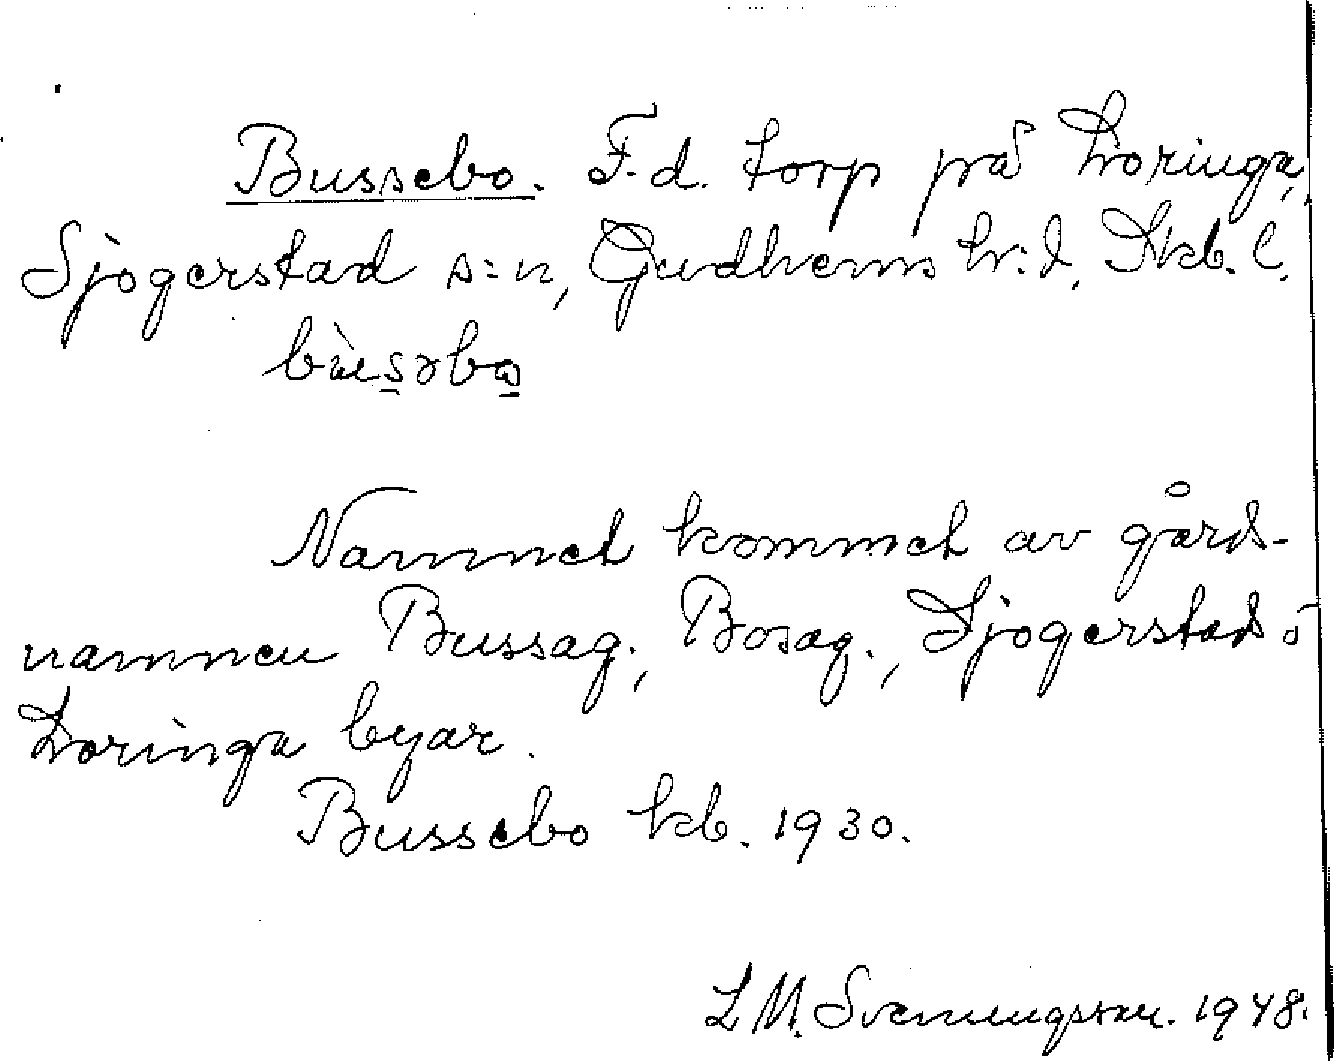 Bussebo. F.d. torp på Loringa,
Sjogerstad s:n, Gudhems h:d, Skb. l.
Namnet kommet av gårds-
namnen Bussag., Bosag., Sjogerstads o
Loringa byar.
Bussebo kb. 1930.
L M. Svenningsson. 1948.